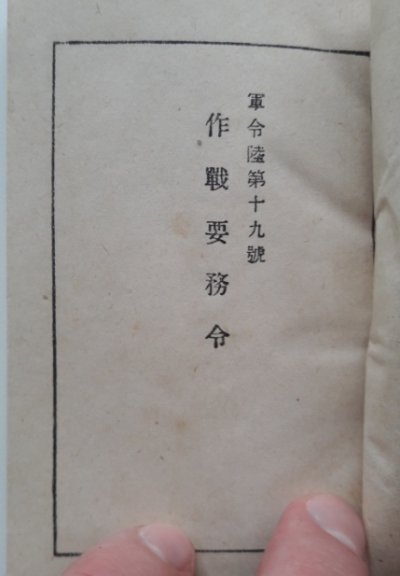 軍令陸第十九號
作戰要務令